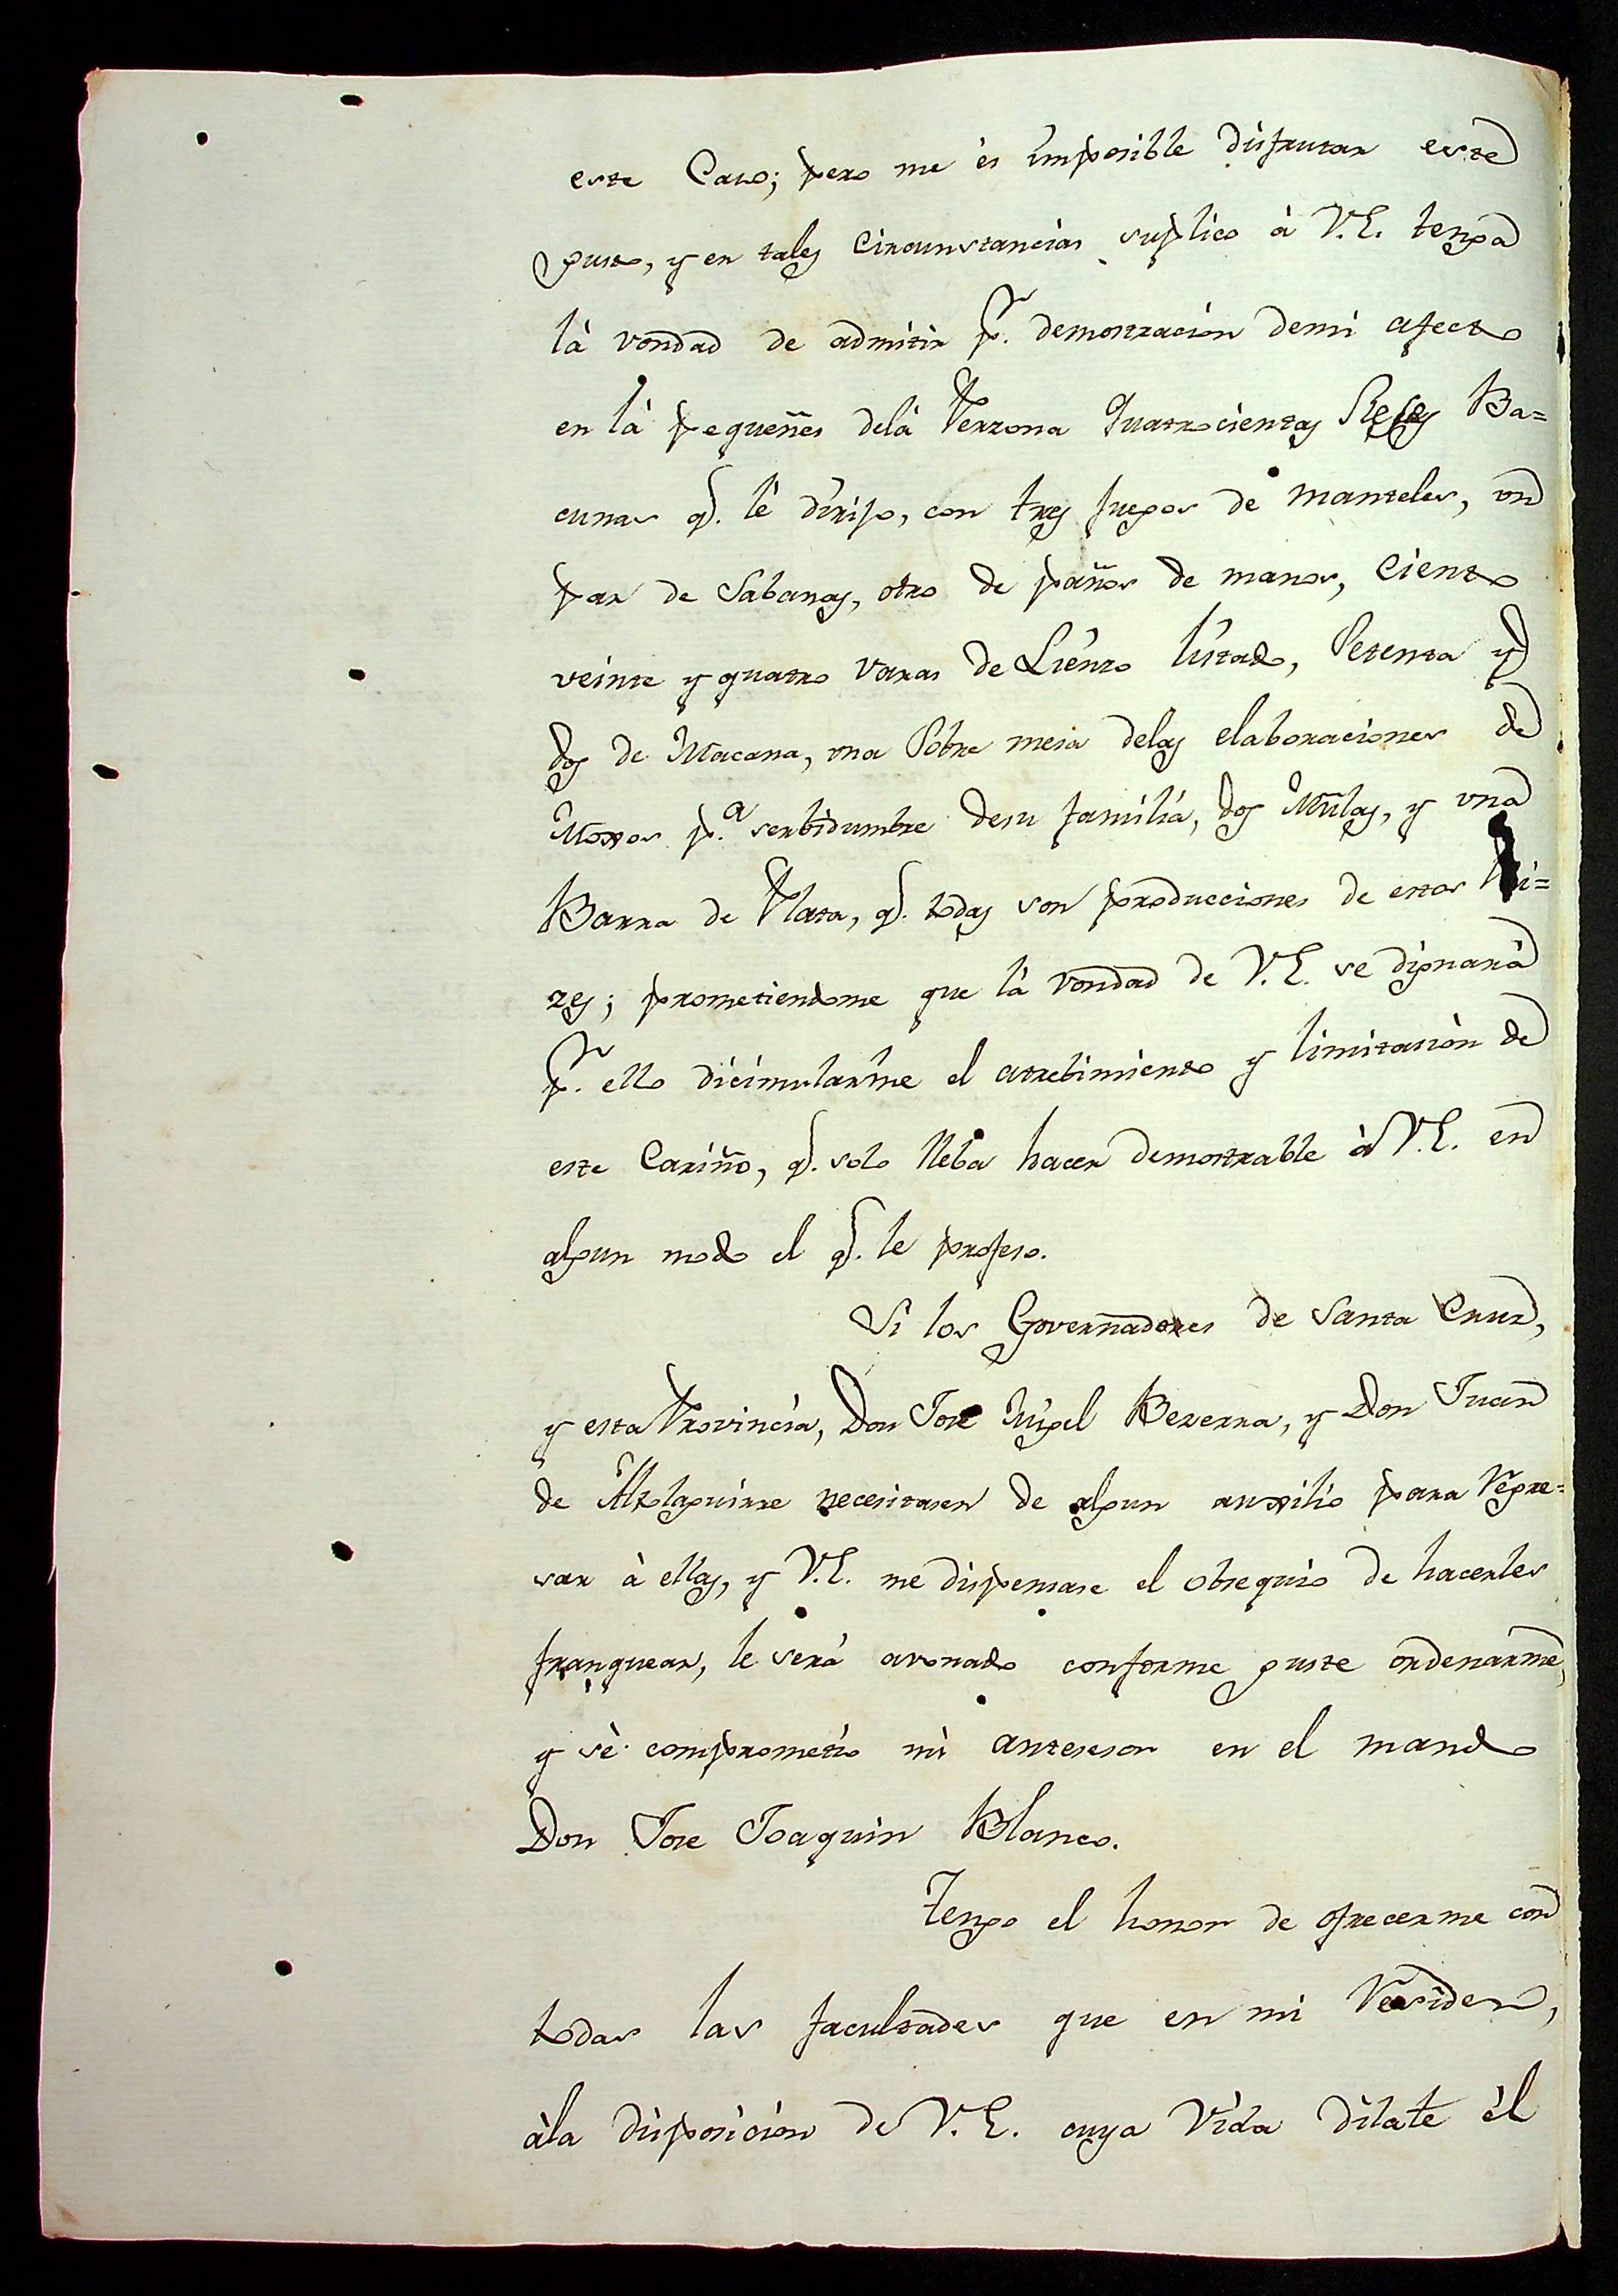 este Caso; pero me es imposible disfrutar este
gusto, y en tales Circunstancias suplico à V.E. tenga
là vondad de admitir p.r demostracion demi afecto
en là pequeñes delà Perzona Quatrocientas Reses Ba=
cunas q.e le dirijo, con tres juegos de manteles, un
par de Sabanas, otro de paños de manos, Ciento
veinte y quatro varas de Lienzo listado, Setenta y
dos de Macana, una Pobre mesa delas elaboraciones de
Moxos p.a serbidumbre desu familia, dos Mulas, y una
Barra de Plata, q.e todas son producciones de estos Pai=
zes; prometiendome que là vondad de V.E. se dignarà
p.r ello dicimularme el atrebimiento y limitasion de
este Cariño, q.e solo lleba hacer demostrable à V.E. en
algun modo el q.e le profeso.
Si los Governadores de Santa Cruz,
y esta Provincia, Don Jose Migel Bezerra, y Don Juan
de Altolaguirre necesitasen de algun auxilio para Regre=
sar à ellas, y V.E. me dispensase el obsequio de hacerles
franquear, le será avonado conforme guste ordenarme,
y sè comprometio mi antesesor en el mando
Don Jose Joaquin Blanco.
Tengo el honor de ofrecerme con
todas las facultades que en mi Residen,
àla disposicion de V.E. cuya Vida dilate èl